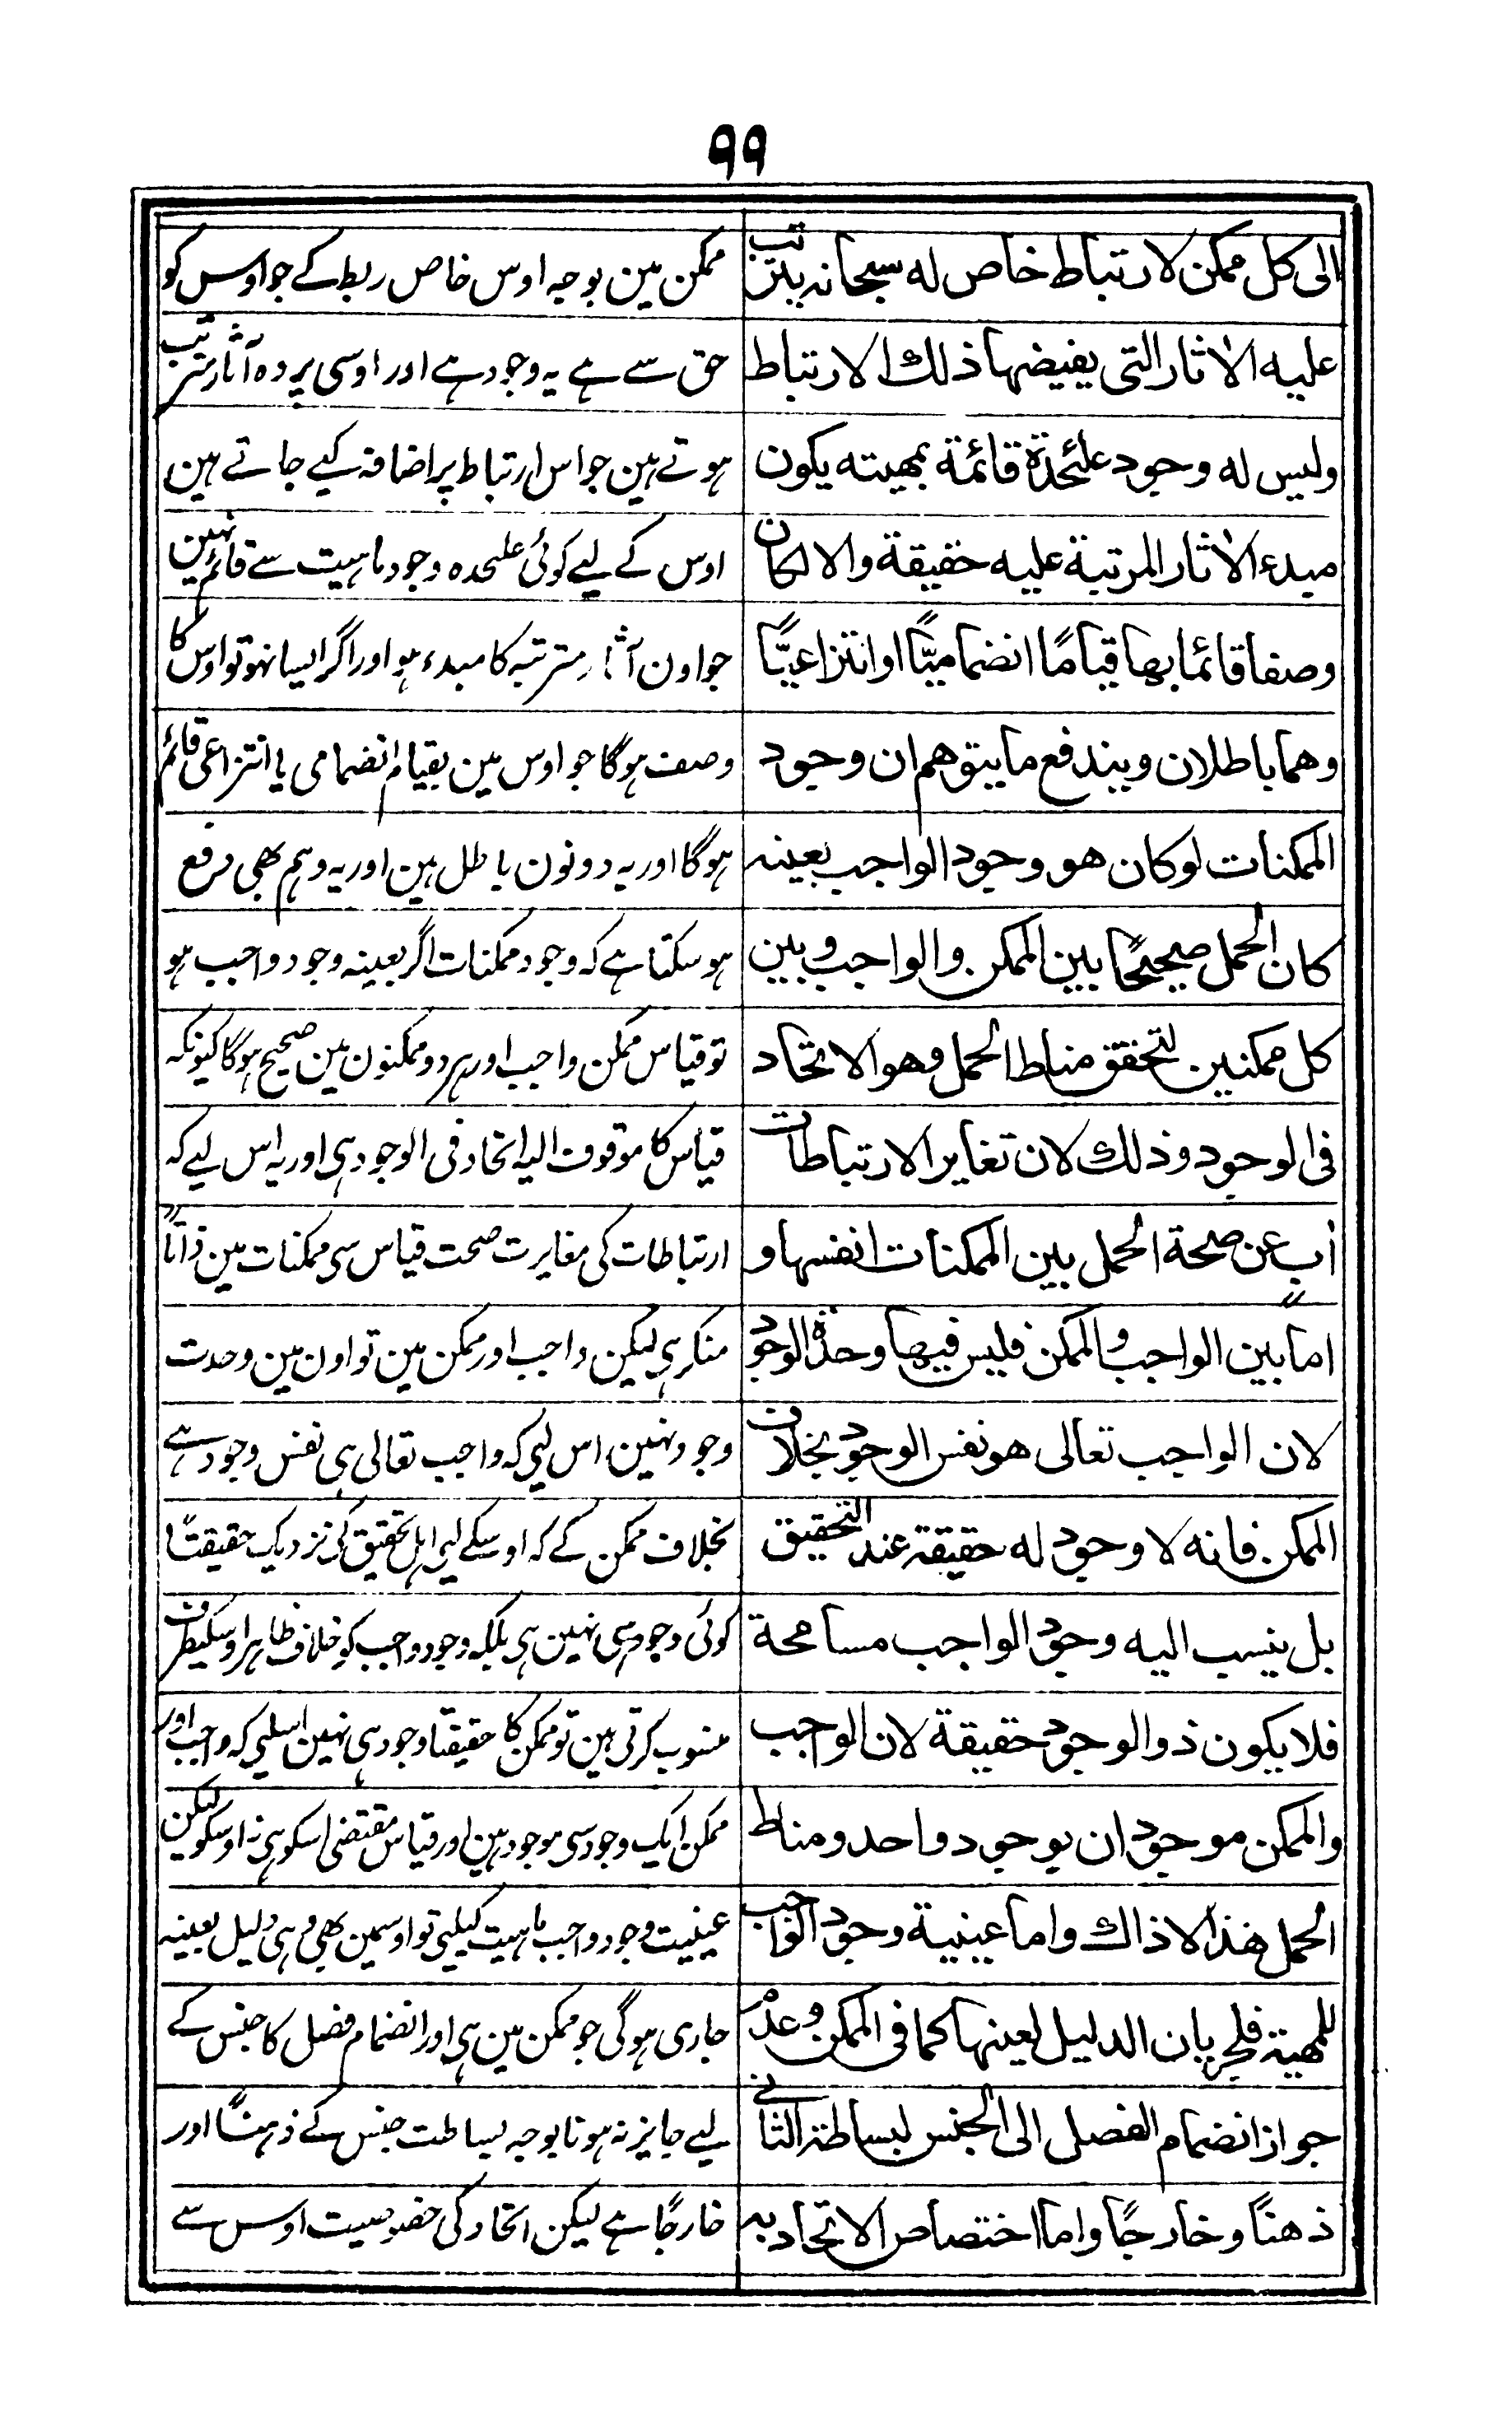 ٩٩
الی کل ممکن لارتباط خاص له سبحانه یترتب
علیه الاٰثار التی یفیضها ذلك الارتباط
ولیس له وجود علٰیحدة قائمة بمهیته یکون
مبدء الاٰثار المرتبة علیه حقیقة والا لکان
وصفا قائما بها قیامًا انضمامیًّا او انتزاعیًّا
وهما باطلان ویندفع ما یتوهم ان وجود
الممکنات لو کان هو وجود الواجب بعینه
کان الحمل صحیحًا بین الممکن والواجب وبین
کل ممکنین لتحقق مناط الحمل وهو الاتحاد
فی الوجود وذلك لان تغایر الارتباطات
اٰب عن صحة الحمل بین الممکنات انفسها و
اما بین الواجب والممکن فلیس فیها وحدة الوجود
لان الواجب تعالی هو نفس الوجود بخلاف
الممکن فانه لا وجود له حقیقة عند التحقیق
بل ینسب الیه وجود الواجب مسامحة
فلا یکون ذو الوجود حقیقة لان الواجب
والممکن موجودان بوجود واحد ومناط
الحمل هذا لا ذاك واما عینیة وجود الواجب
للمهیة فلجریان الدلیل بعینها کما فی الممکن وعدم
جواز انضمام الفصل الی الجنس لبساطة الثانی
ذهنًا وخارجًا واما اختصاص الاتحاد به
ممکن مین بوجہ اوس خاص ربط کے جو اوس کو
حق سے ہے یہ وجود ہے اور اوسی پر وہ آثار مترتب
ہوتے ہین جو اس ارتباط پر اضافہ کیے جاتے ہین
اوس کے لیے کوئی علیحدہ وجود ماہیت سے قائم نہین
جو اون آثار مترتبہ کا مبدء ہو اور اگر ایسا نہو تو اوس کا
وصف ہوگا جو اوس مین بقیام انضمامی یا انتزاعی قائم
ہوگا اور یہ دونون باطل ہین اور یہ وہم بھی دفع
ہو سکتا ہے کہ وجود ممکنات اگر بعینہ وجود واجب ہو
تو قیاس ممکن واجب اور ہر دو ممکنون مین صحیح ہوگا کیونکہ
قیاس کا موقوف الیہ اتحاد فی الوجود ہی اور یہ اس لیے کہ
ارتباطات کی مغایرت صحت قیاس سی ممکنات مین ذاتًا
منکر ہی لیکن واجب اور ممکن مین تو اون مین وحدت
وجود نہین اس لیی کہ واجب تعالی ہی نفس وجود ہے
بخلاف ممکن کے کہ اوسکے لیی اہل تحقیق کی نزدیک حقیقتًا
کوئی وجود ہی نہین ہی بلکہ وجود واجب کو خلاف ظاہر اوسکیطرف
منسوب کرتی ہین تو ممکن کا حقیقتًا وجود ہی نہین اسلیی کہ واجب اور
ممکن ایک وجود سی موجود ہین اور قیاس مقتضی اسکو ہی نہ اوسکو لیکن
عینیت وجود واجب ماہیت کیلیی تو اوسمین بھی وہی دلیل بعینہ
جاری ہوگی جو ممکن مین ہی اور انضمام فصل کا جنس کے
لیے جایز نہ ہونا بوجہ بساطت جنس کے ذہنًا اور
خارجًا ہے لیکن اتحاد کی خصوصیت اوس سے